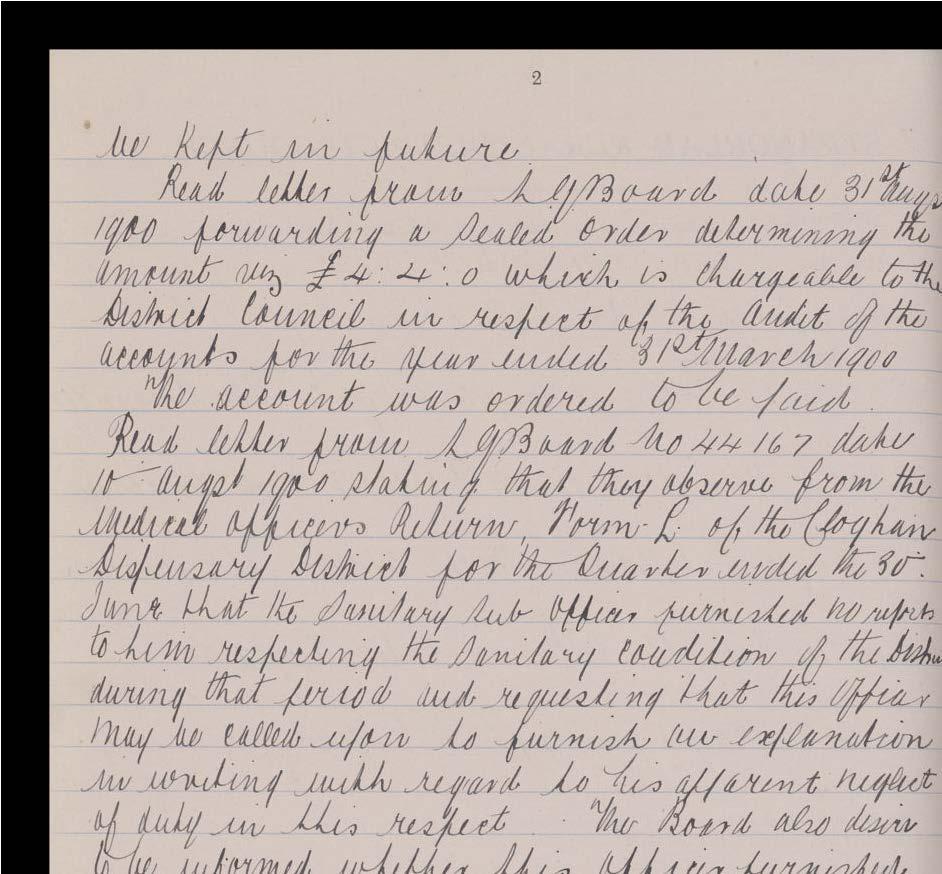 2
be Kept in future
Read letter from L G Board date 31st Augt
1900 forwarding a Sealed Order determining the
amount viz £4:4:0 which is Chargeable to the
District Council in respect of the Audit of the
accounts for the year ended 31st March 1900
The account was ordered to be paid.
Read letter from L G Board No 44167 date
10 Augst 1900 stating that they observe from the
Medical Officers Return, Form L of the Cloghan
Dispensary District for the Quarter ended the 30.
June that the Sanitary Sub Officer furnished no reports
to him respecting the Sanitary Condition of the Distri
during that period and requesting that this Officer
May be called upon to furnish an explanation
in writing with regard to his apparent neglect
of duty in this respect. The Board also desire
to be informed whether this Officer furnished